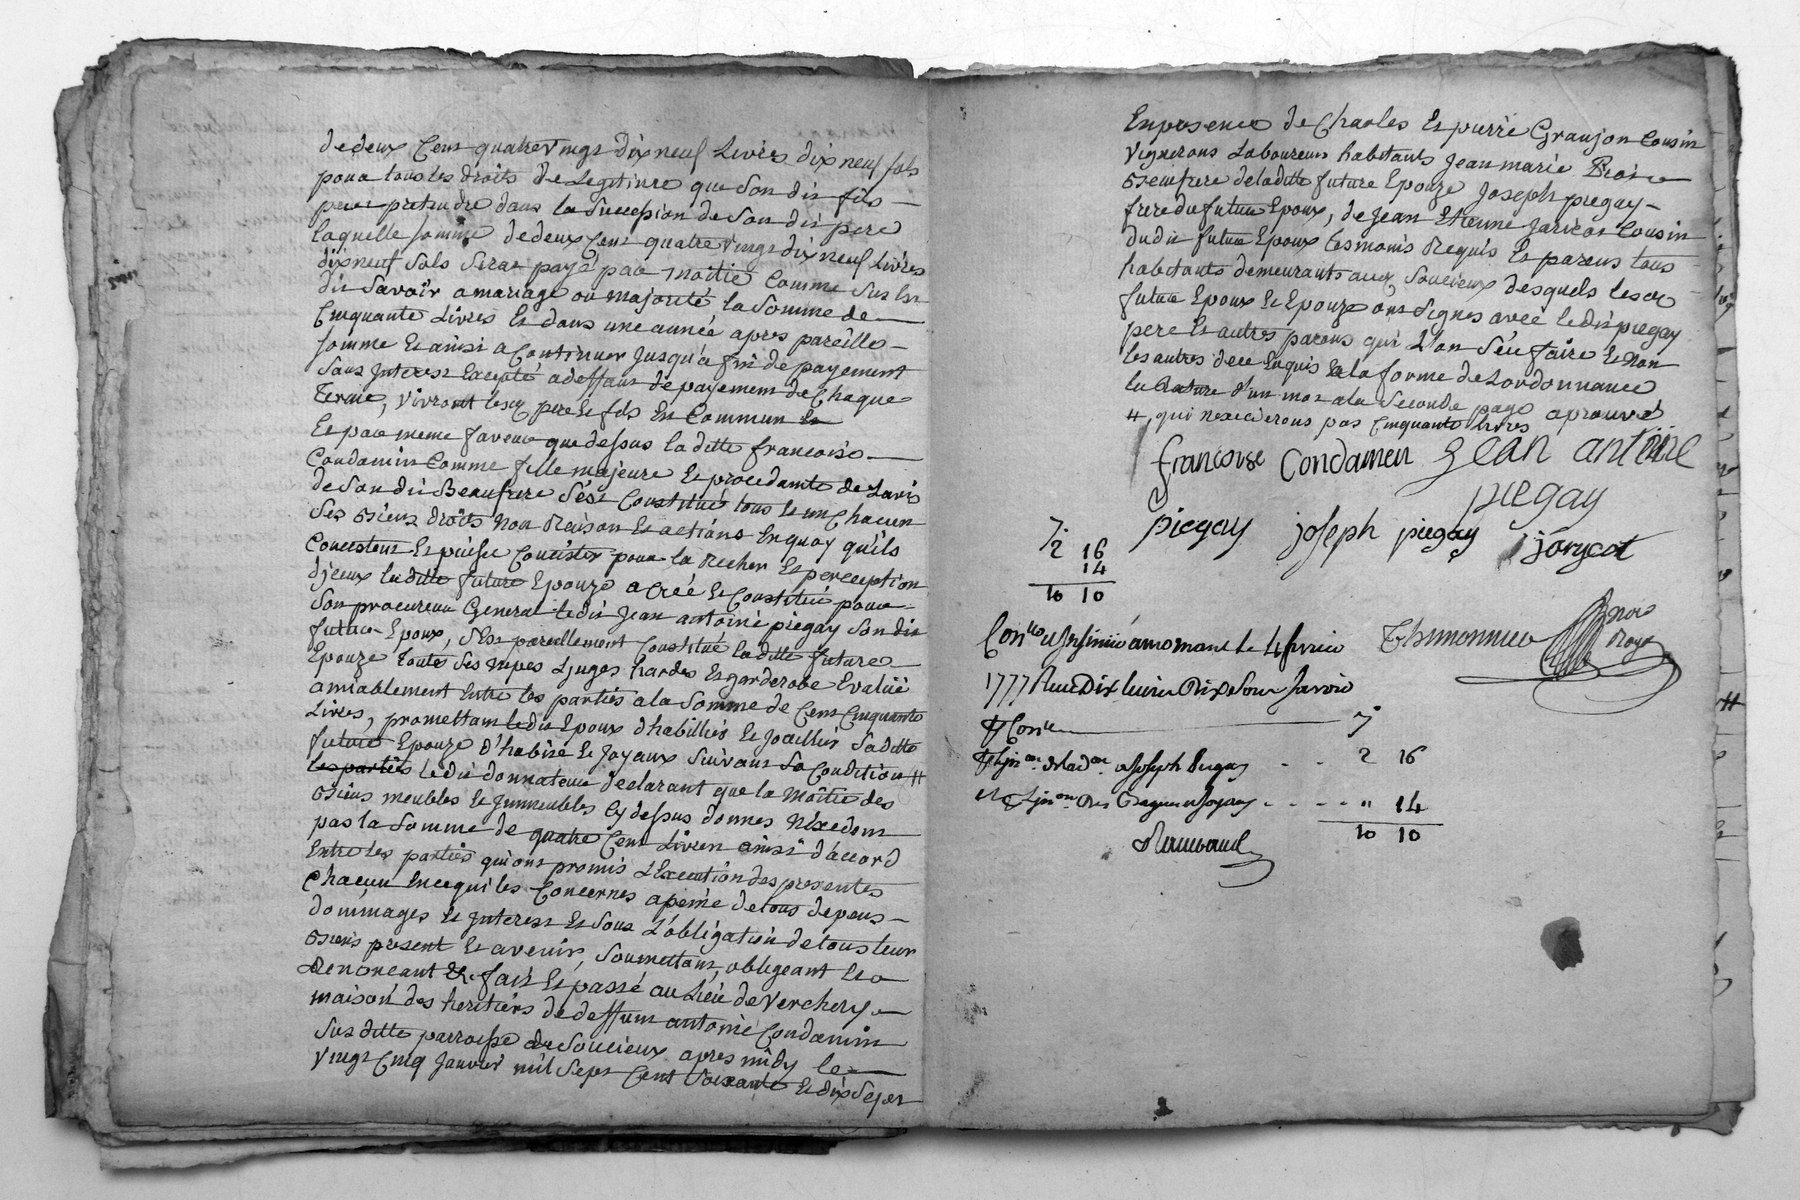 de deux Cent quatre vingt dix neuf Livres dix neuf sols
pour tous les droits de Legitime que son dit fils
peut pretendre dans la succession de son dit pere
laquelle somme de deux Cent quatre vingt dix neuf Livres
dix neuf sols sera payé par moitié Comme sus est
dit savoir a mariage ou majorité la somme de
Cinquante Livres et dans une année apres pareille
somme et ainsi a Continuer jusqu'a fin de payement
sans Interest Excepté a deffaut de payement de Chaque
Terme, vivront lesd pere et fils en Commun
Et par meme faveur que dessus la ditte francoise
Condamin Comme fille majeure et procedante de Lavis
de son dit Beaufrere s'est Constitué tous et un Chacun
ses Biens droits nom Raison et actions en quoy qu'ils
Concistent et puisse Concister pour la Recher et perception
d'jceux la ditte future Epouze a créé et Constitué pour
son procureur General ledit jean antoine piegay son dit
futur Epoux, s'est pareillement Constitué la ditte future
Epouze toute ses nipes Linges hardes et garderobe Evalué
amiablement entre les parties a la somme de Cent Cinquante
Livres, promettant ledit Epoux d'habilliér et joaillier saditte
future Epouze d'habits et joyaux suivant sa Condition #
les parties ledit donnateur declarant que la moitié des
Biens meubles et Immeubles cy dessus donnes n'Exedent
pas la somme de quatre Cent Livres ainsi d'accord
Entre les parties qui ont promis L'Execution des presentes
Chacun en ce qui les Concernes a peine de tous depens
dommages et Interest et sous L'obligation de tous leur
Biens present et avenir, soumettant, obligeant Et a
Renonceant &c. fait et passé au Lieu de verchery
maison des heritiers de deffunt antoine Condamin
sus ditte parroisse de soucieux apres midy le
vingt cinq janvier mil sept Cent soixante et dix sept
En presence de Charles et pierre Granjon Cousin
vignerons Laboureurs habitants jean marie
Beaufrere de la ditte future Epouze joseph piegay
frere du futur Epoux, de jean Etienne jaricot Cousin
du dit futur Epoux tesmoins Requis et parens tous
habitants demeurants aud soucieux desquels lesd
futur Epoux et Epouze ont signes avec le dit piegay
pere et autres parens qui L'on sceu faire et non
les autres de ce Enquis a la forme de Lordonnance
la Rature d'un mot a la seconde page aprouvé
#, qui n'excederons pas cinquante livres
francoise Condamin jean antoine
piegay
piegay joseph piegay jarycot
7.
2 16
14
10 10
Thimonnier nore Royal
Con.lé et Insinué a mornant le 4 fevrier
1777 Reçu Dix livres Dix sous Savoir
p Con.le 7
2 16
" 14
10 10